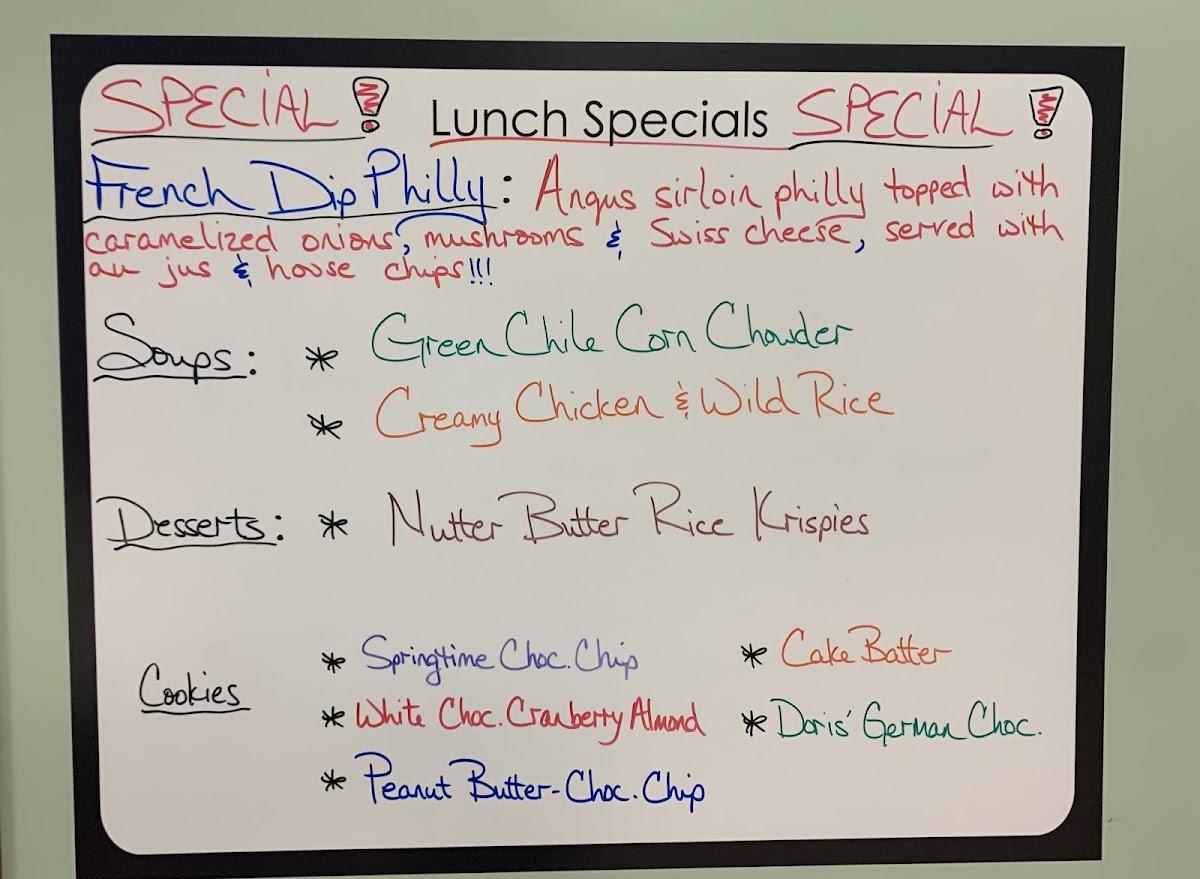 SPECIAL! Lunch Specials SPECIAL!
French Dip Philly: Angus sirloin philly topped with
caramelized onions, mushrooms & Swiss cheese, served with
au jus & house chips!!!
Soups: * Green Chile Corn Chowder
* Creamy Chicken & Wild Rice
Desserts: * Nutter Butter Rice Krispies
Cookies
* Springtime Choc. Chip * Cake Batter
* White Choc. Cranberry Almond * Doris' German Choc.
* Peanut Butter-Choc. Chip